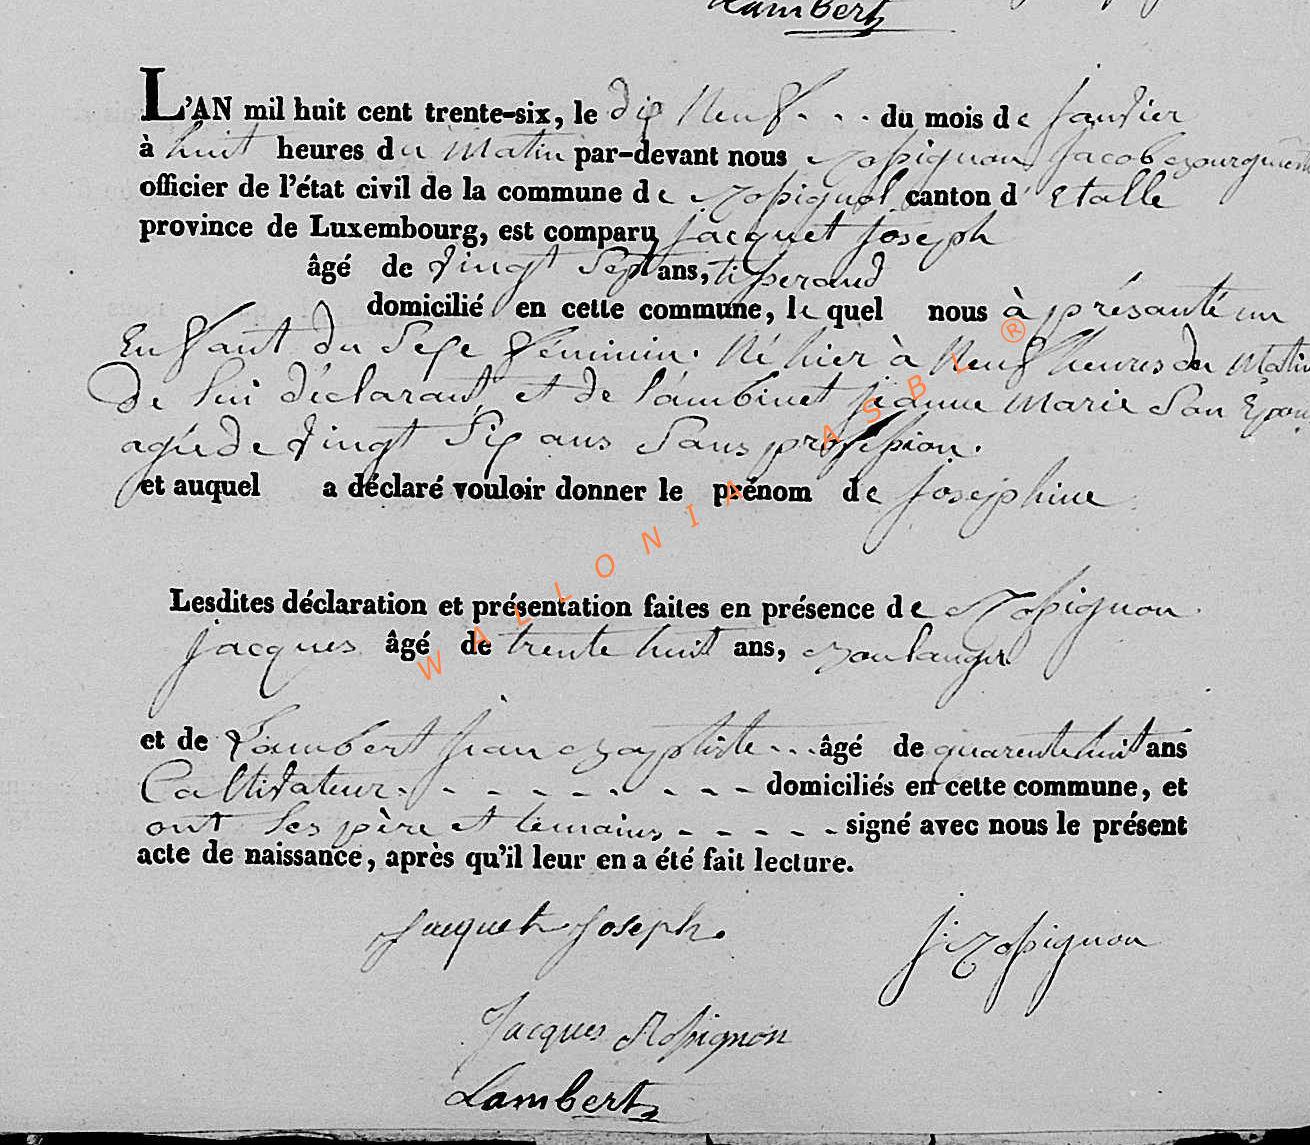 Lambert
L'AN mil huit cent trente-six, le dix Neuf . . . du mois de Janvier
à huit heures du Matin par-devant nous Rossignon Jacob Bourguemest
officier de l'état civil de la commune de Rossignol canton d' Etalle
province de Luxembourg, est comparu Jacquet Joseph
âgé de vingt sept ans, tisserand
domicilié en cette commune, le quel nous à présanté un
Enfant du Sexe féminin. Né hier à Neuf heures du Matin
de lui déclarant et de Lambinet Jeanne Marie Son Epou
agée de vingt Six ans Sans profession.
et auquel a déclaré vouloir donner le prénom de Joséphine
Lesdites déclaration et présentation faites en présence de Rossignon
jacques âgé de trente huit ans, Boulanger
et de Lambert Jean Baptiste . . . âgé de quarente huit ans
Cultivateur. - - - - - - - - - domiciliés en cette commune, et
ont les père et témains - - - - - signé avec nous le présent
acte de naissance, après qu'il leur en a été fait lecture.
Jacquet Joseph.
J: Rossignon
Jacques Rossignon
Lambert
WALLONIA ASBL ®